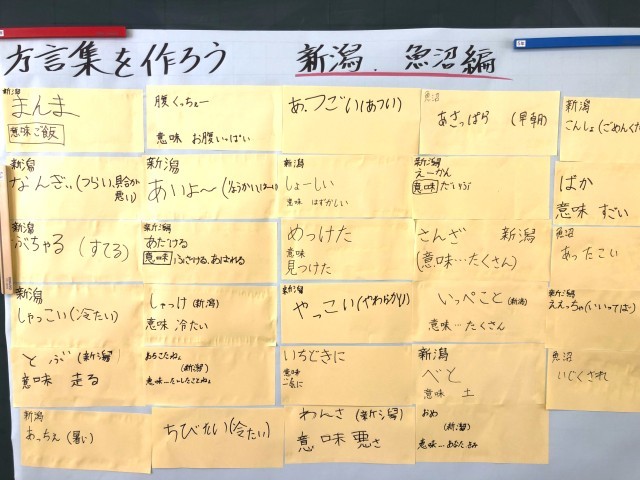 方言集を作ろう 新潟、魚沼編
新潟
まんま
意味 ご飯
腹くっちぇー
意味 お腹いっぱい
あ、つごい(あつい)
魚沼
あさっぱら (早朝)
新潟
こんしょ(ごめんくだ
新潟
なんぎぃ(つらい、具合が
悪い)
新潟
あいよ〜
新潟
しょーしい
意味 はずかしい
新潟
えーかん
意味 だいぶ
ばか
意味 すごい
新潟
ぶちゃる (すてる)
新潟
あたける
意味 ふざける、あばれる
めっけた
意味
見つけた
さんざ 新潟
(意味…たくさん)
魚沼
あったこい
新潟
しゃっこい(冷たい)
しゃっけ(新潟)
意味 冷たい
新潟
やっこい(やわらかい)
いっぺこと(新潟)
意味…たくさん
新潟
ええっちゃ(いいってばー)
とぶ(新潟)
意味 走る
(新潟)
いちどきに
意味
一気に
新潟
べと
意味 土
魚沼
いじくされ
新潟
あっちぇ(暑い)
ちびたい(冷たい)
わんさ(新潟)
意味 悪さ
おめ
(新潟)
意味…あなた、きみ